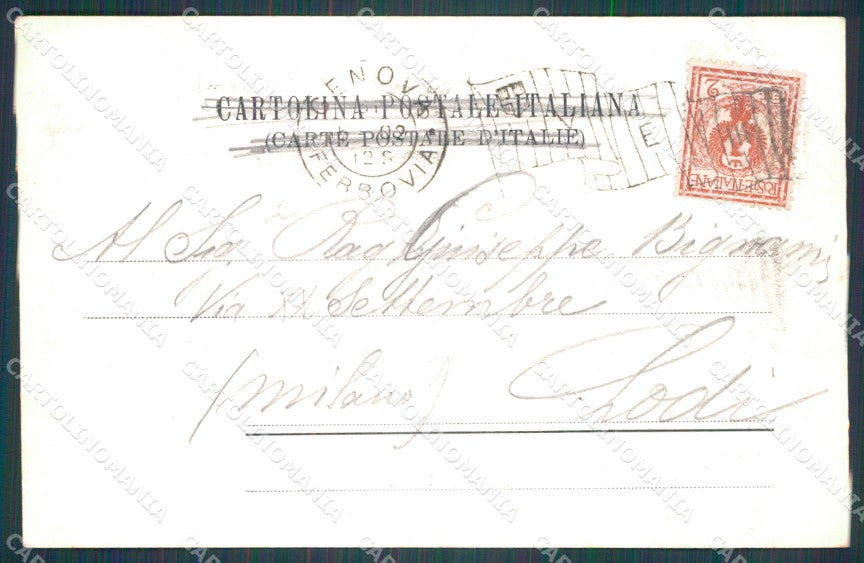 CARTOLINA POSTALE ITALIANA
(CARTE POSTALE D'ITALIE)
GENOVA
FERROVIA
2
POSTE ITALIANE
Al Sig. Rag. Giuseppe Bignami
Via XX Settembre
(Milano) Lodi
CARTOLINOMANIA